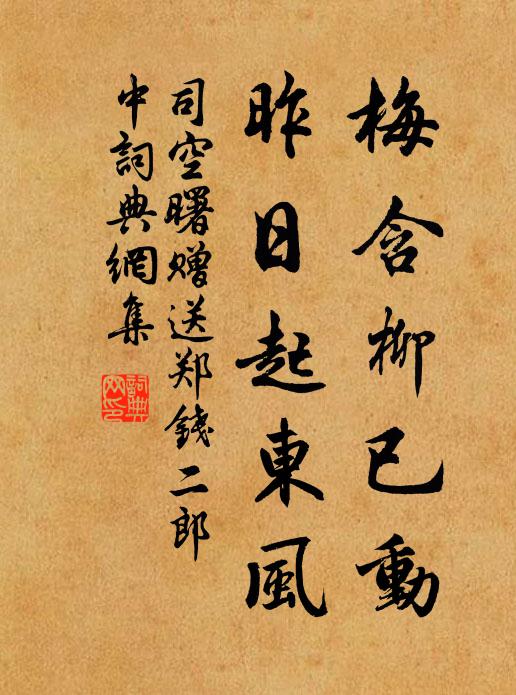 梅含柳已動
昨日起東風
司空曙贈送郑錢二郎
中詞典網集
詞典網印